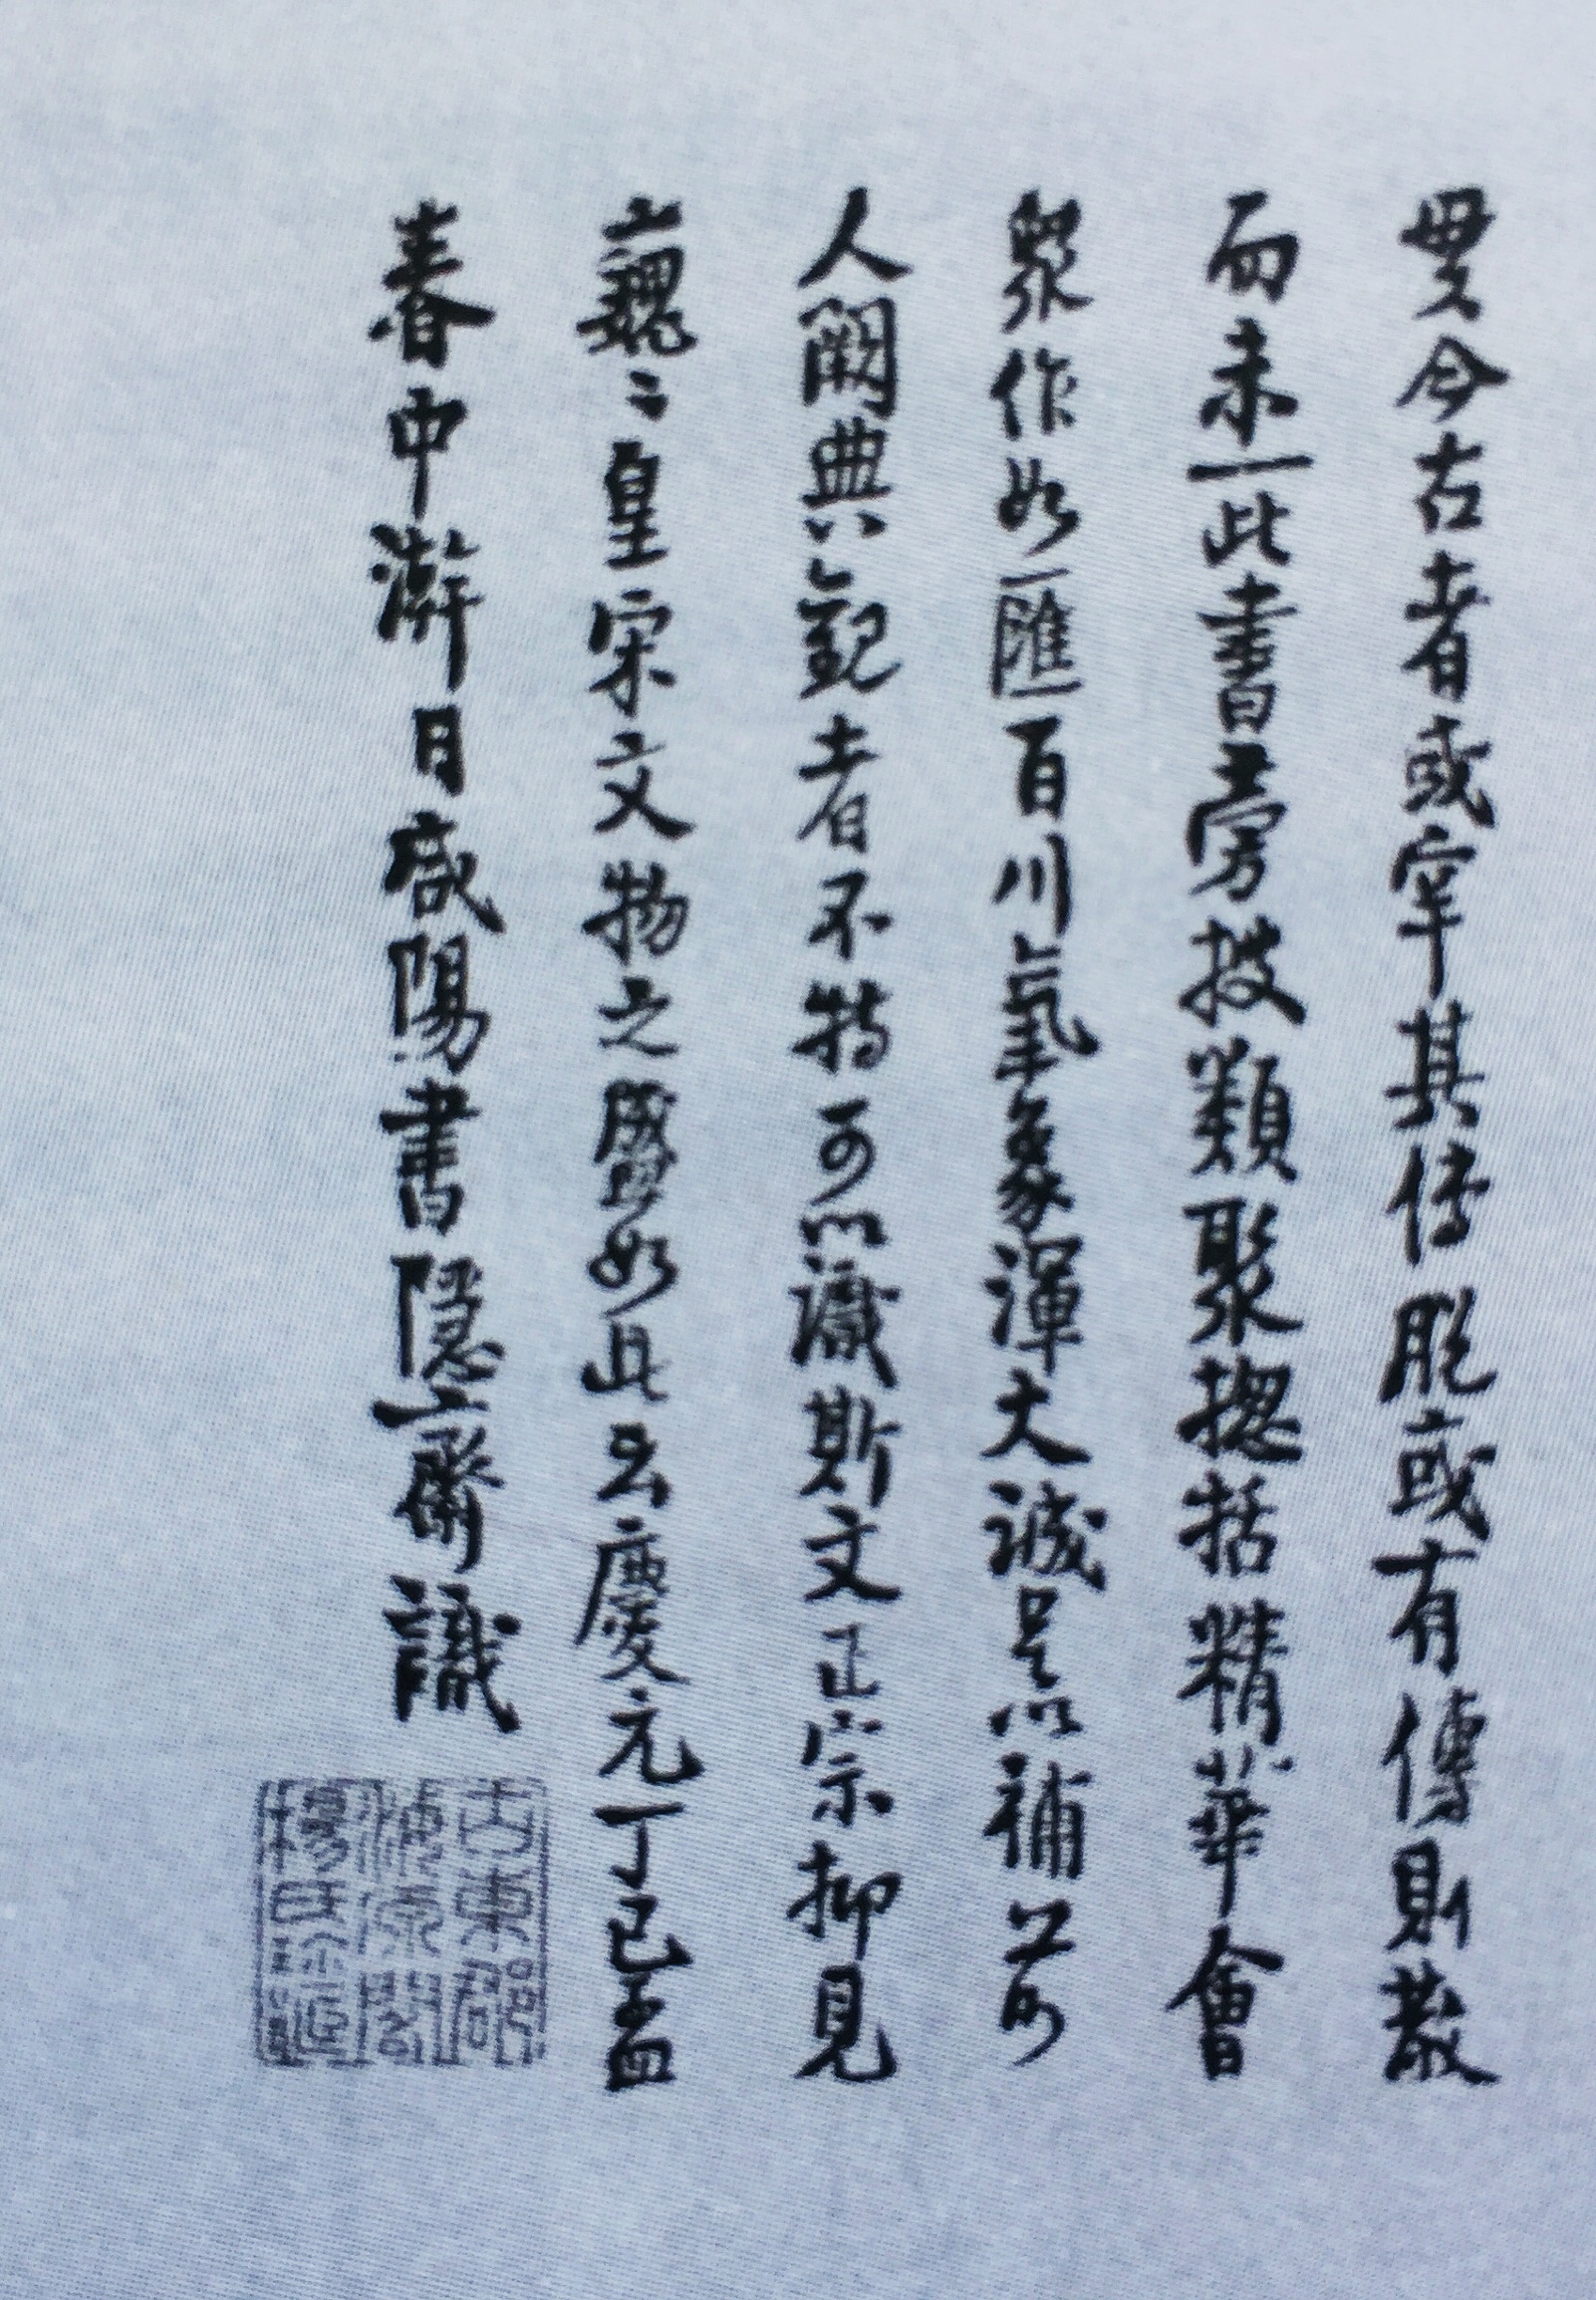 貫今古者或宰其傳脫或有傳則散
而未一此書旁捜類聚揔括精華會
衆作如匯百川氣象渾大誠足以補前
人闕典觀者不特可以識斯文正宗抑見
巍〻皇宋文物之盛如此云慶元丁巳孟
春中澣日咸陽書隱齋識
古東郡
楊氏